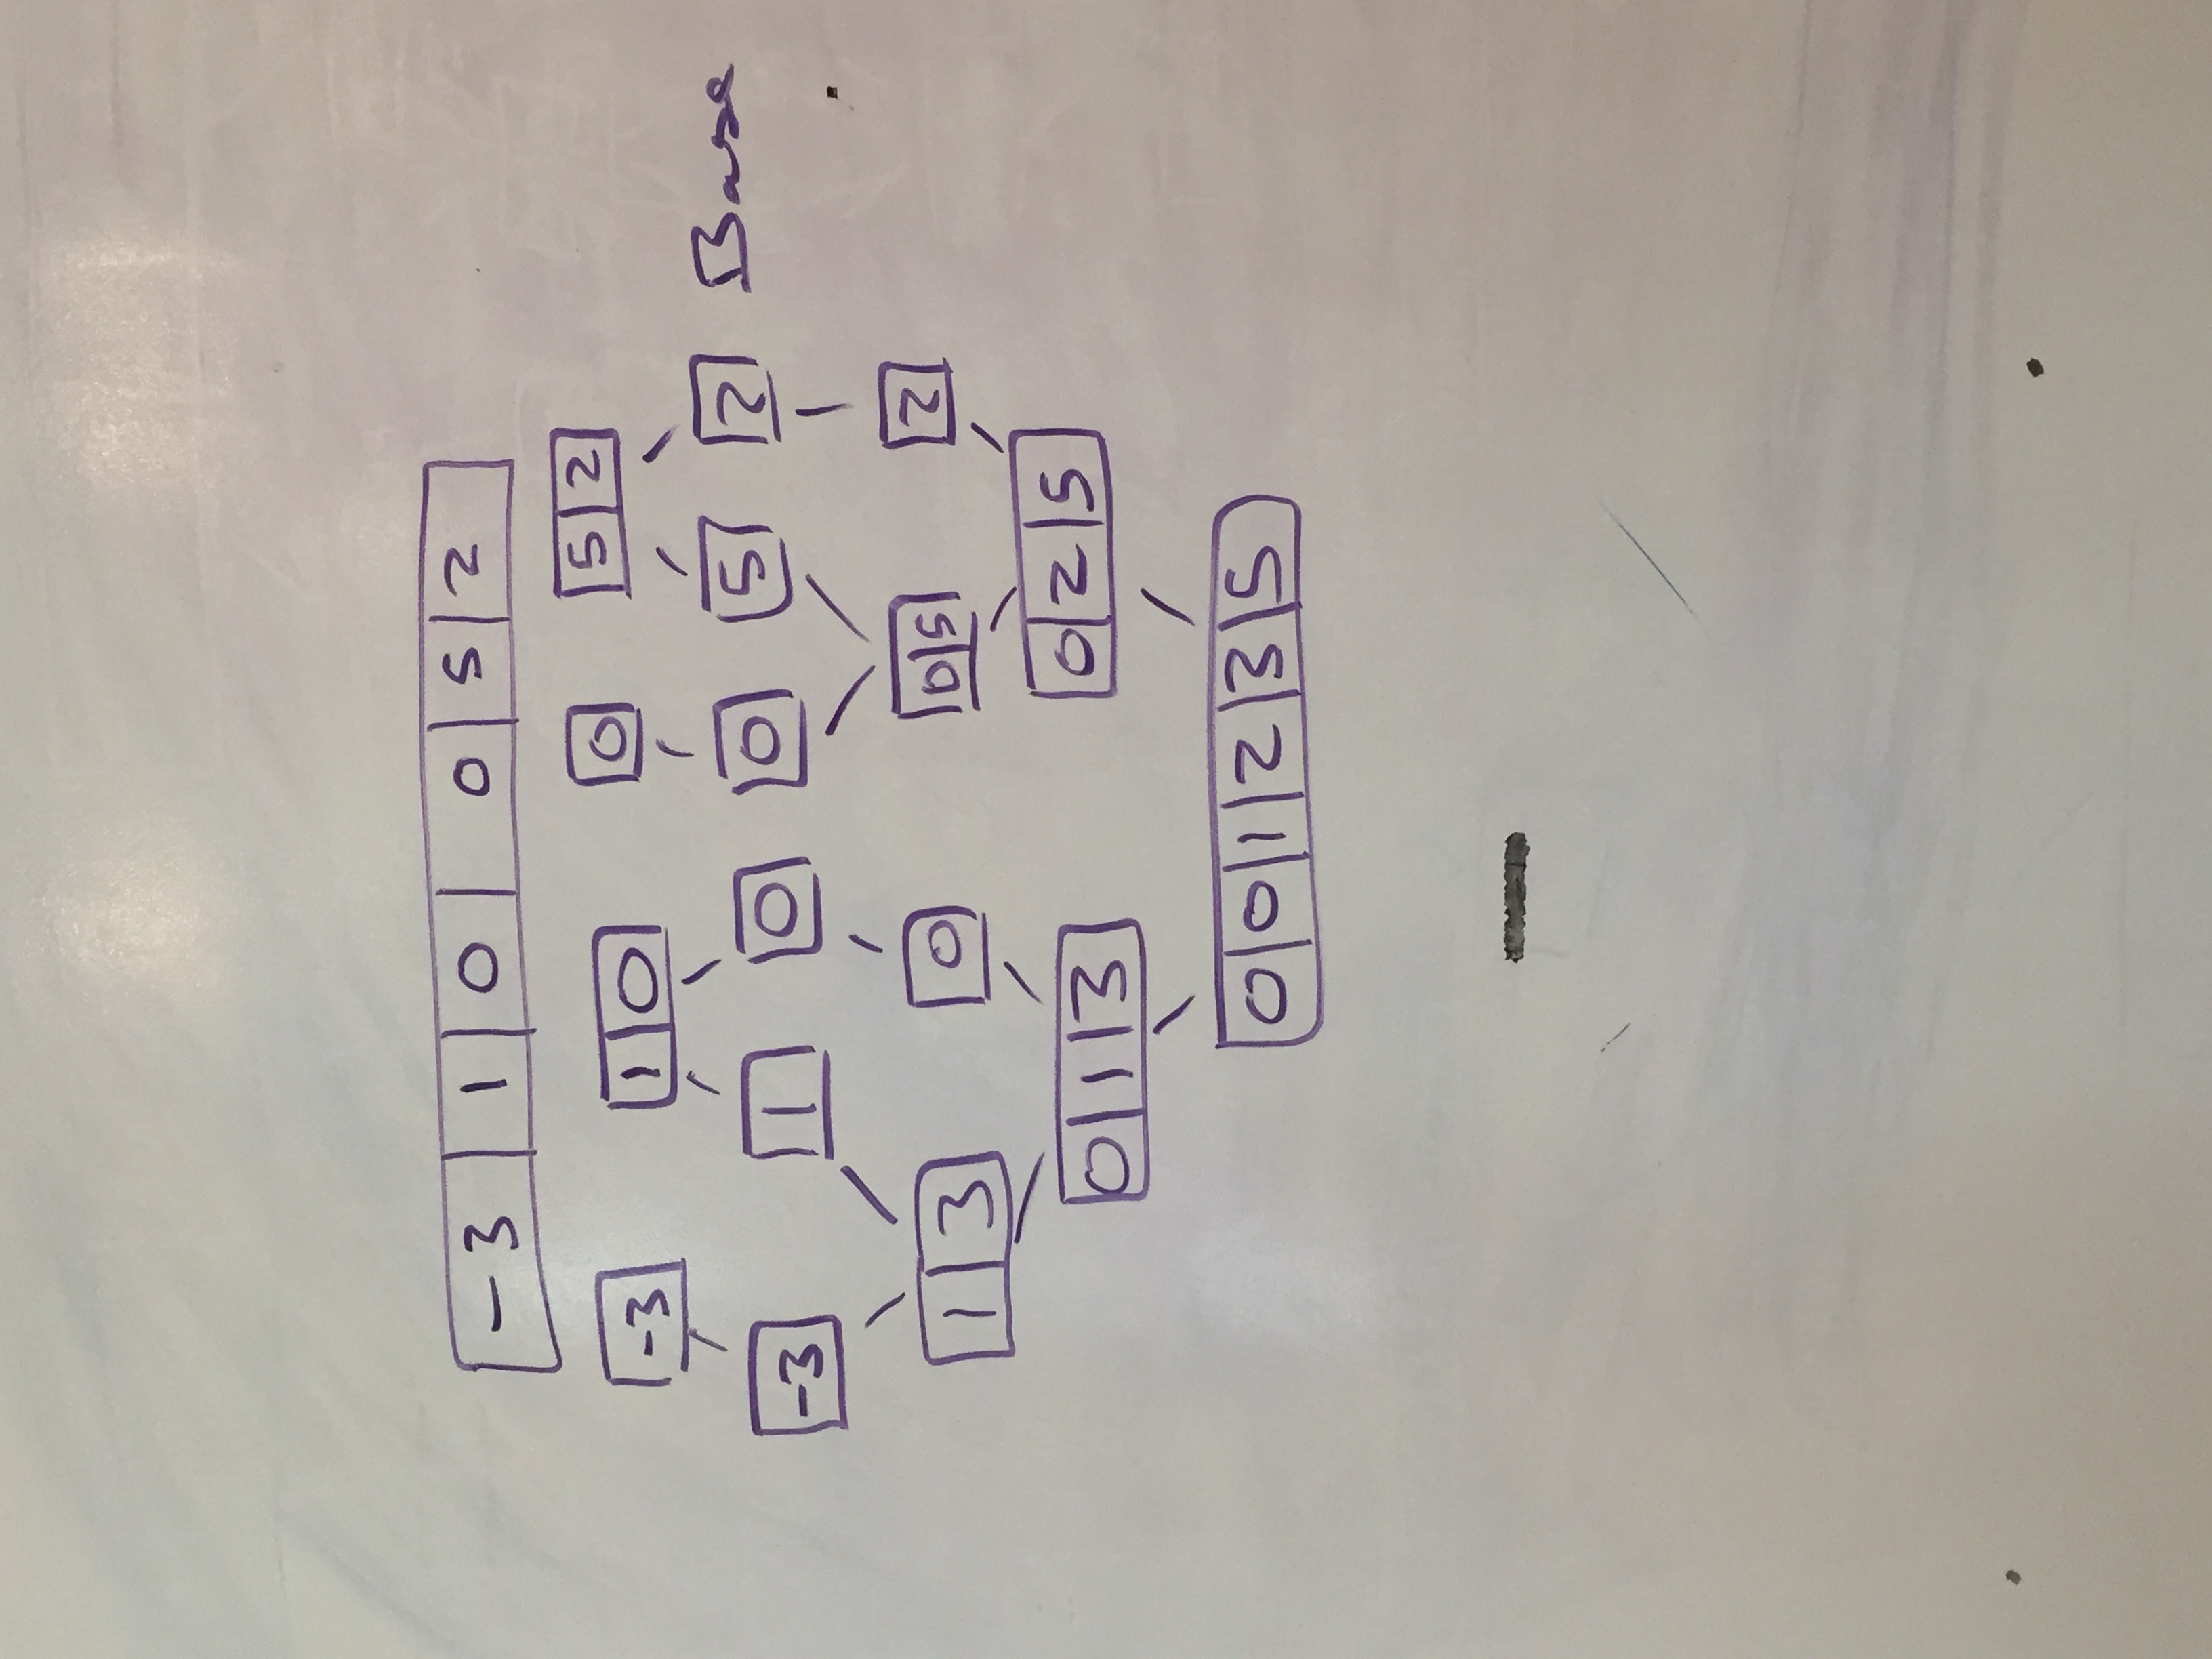 -3 1 0 0 5 2
-3 1 0 0 5 2
-3 1 0 0 5 2 Base
1 3 0 0 5 2
0 1 3 0 2 5
0 0 1 2 3 5